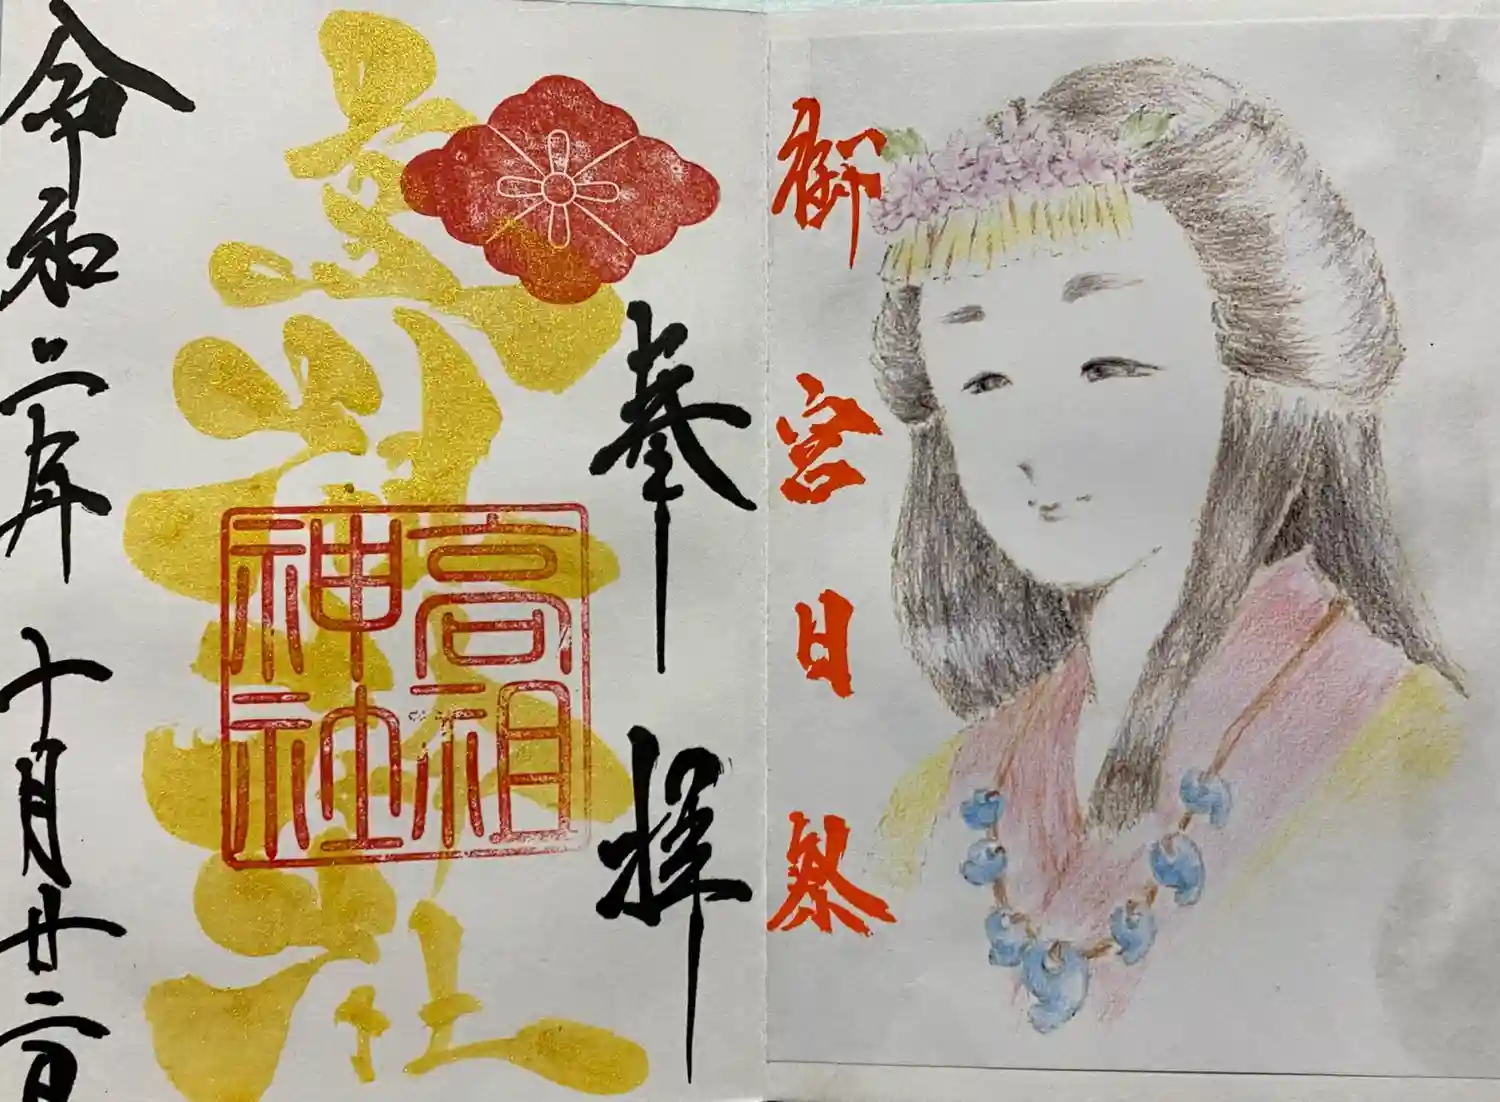 御宮日祭
奉拝
高祖神社
高祖神社
令和二年十月廿二日